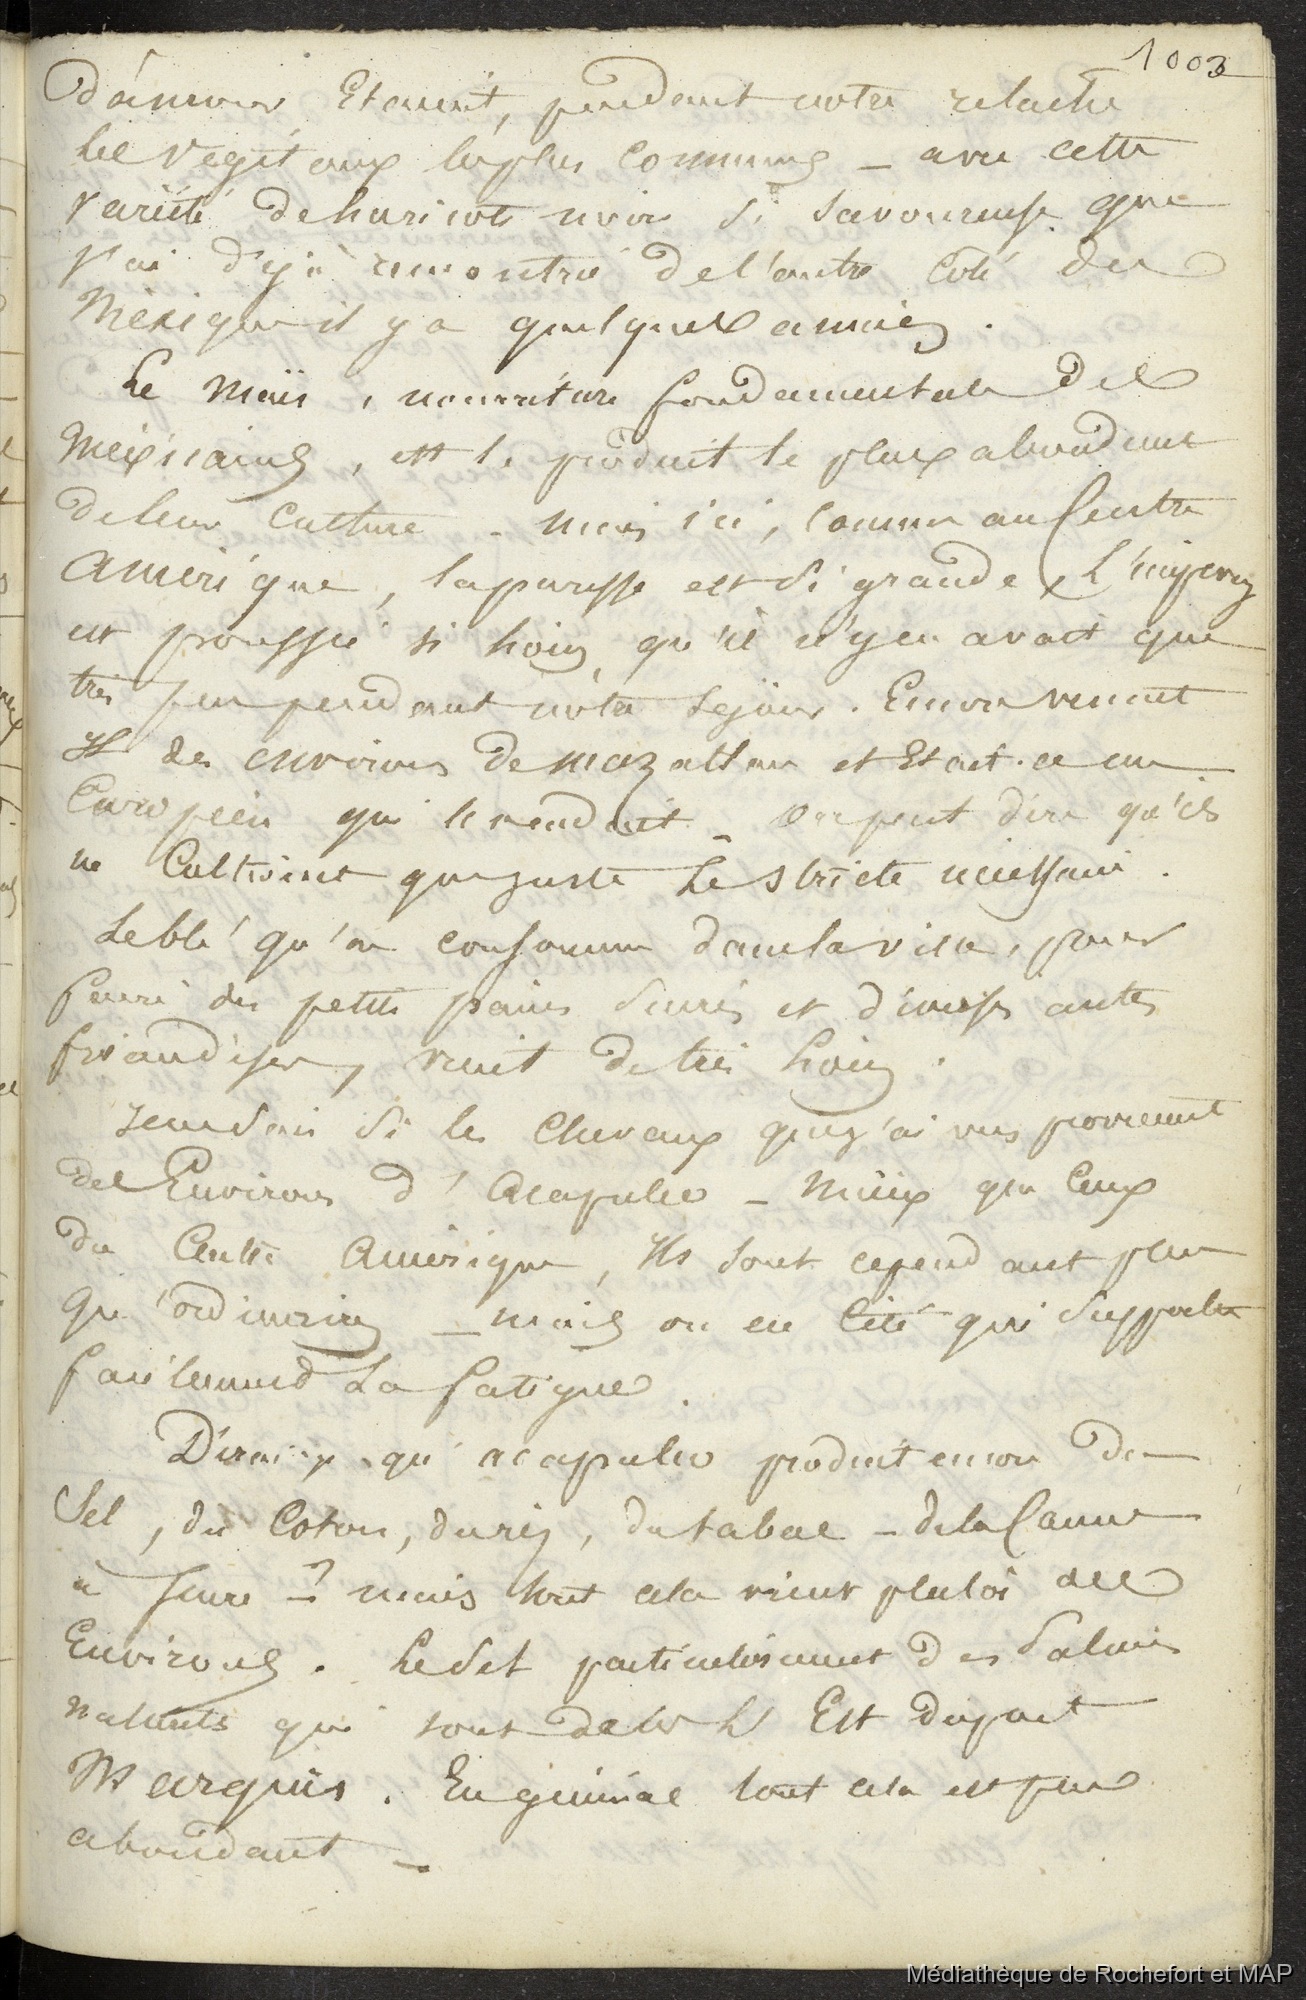 1003
d'amour etaient, pendant notre relache
les végétaux les plus communs _ avec cette
variété de haricots noirs si savoureuse que
j'ai déjà rencontré de l'autre coté du
Mexique il y a quelques années.
Le maïs, nourriture fondamentale des
mexicains, est le produit le plus abondant
de leur culture _ mais ici, comme au Centre
Amérique, la paresse est si grande, L'
est poussée si loin, qu'il n'y en avait que
très peu pendant notre séjour. Encore venait
Il des environs de mazatlan et Etait-ce un
Européen qui le vendait _ On peut dire qu'ils
ne Cultivent que juste Le stricte nécessaire.
Le blé qu'on consomme dans la ville, pour
faire des petits pains sucrés et diverses autres
friandises, vient de très loin.
Je ne sais si les chevaux que j'ai vus proviennent
des Environs d'Acapulco _ Mieux que Ceux
du Centre Amérique, Ils sont cependant plus
qu'ordinaires _ mais on en cité qui supporte
facilement La fatigue.
Dirai-je qu'acapulco produit encore du
Sel, du Coton, du riz, du tabac _ de la Canne
à sucre _? mais tout cela vient plutôt des
Environs. Le Sel particulièrement des Salines
naturels qui sont dans L'Est du port
Marquis. En général tout cela est peu
abondant _
Médiathèque de Rochefort et MAP